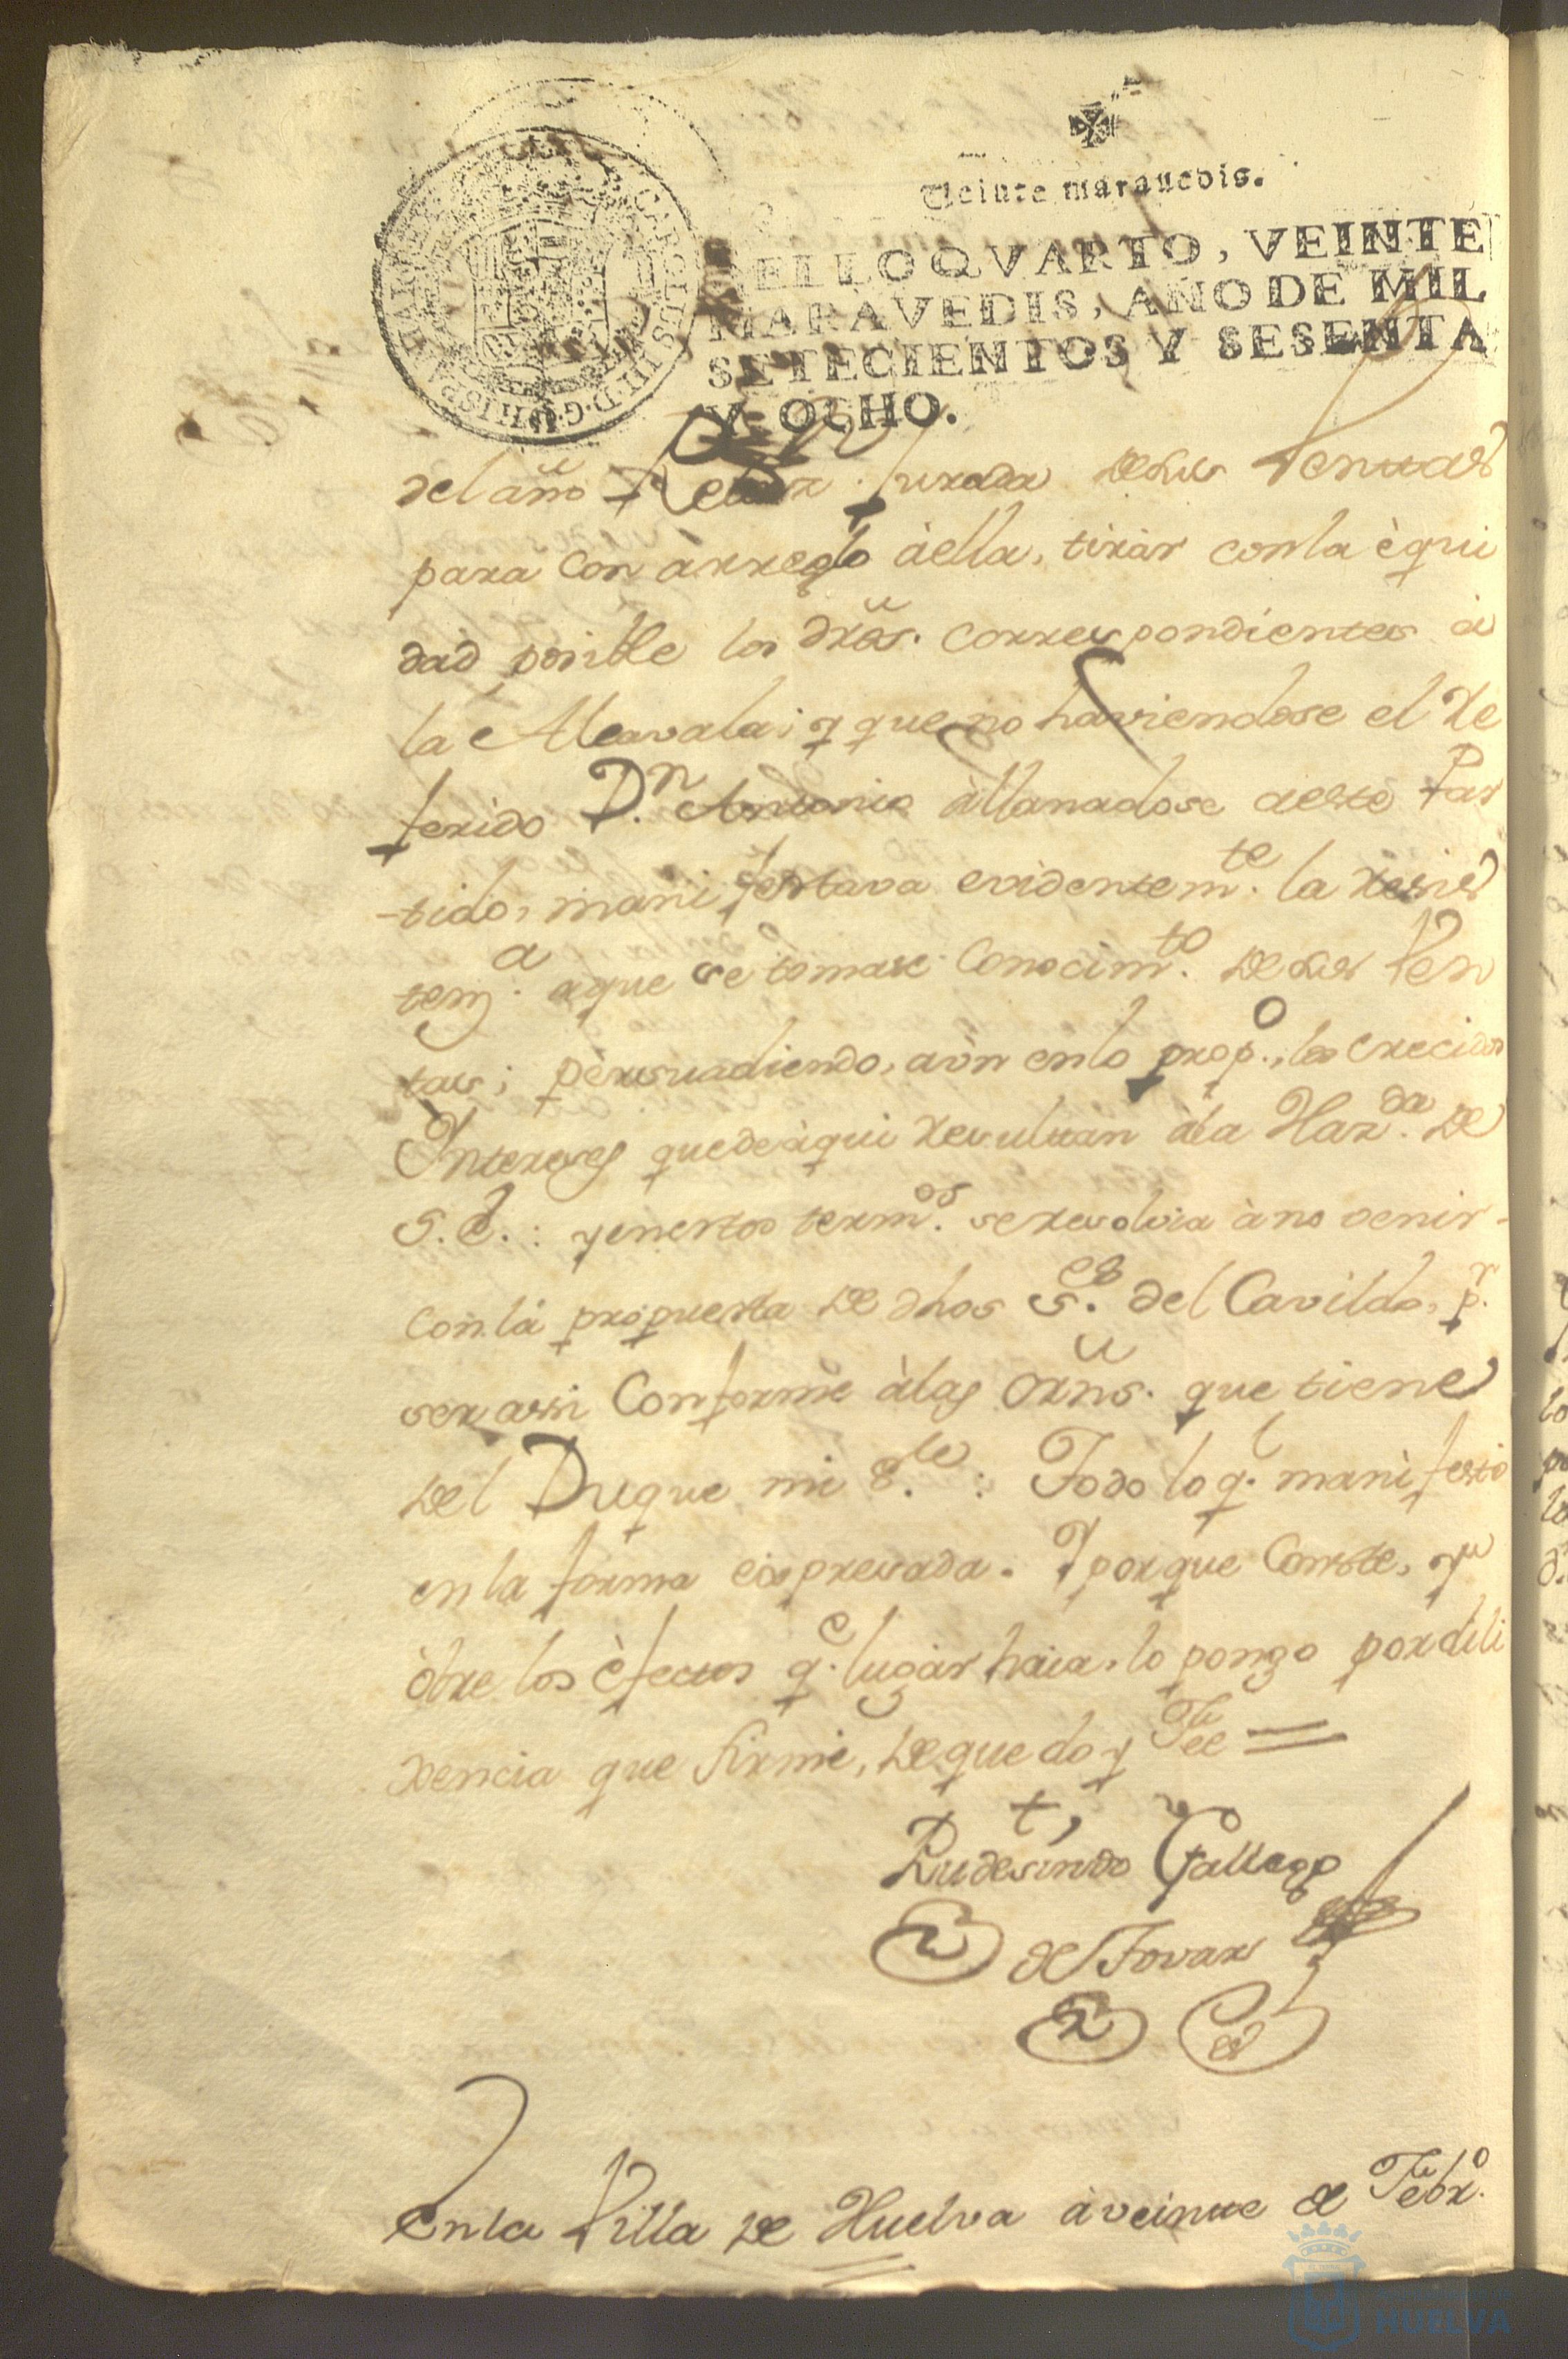 Veinte marauedis.
SELLO QVARTO, VEINTE
MARAVEDIS, AÑO DE MIL
SETECIENTOS Y SESENTA
Y OCHO.
CAROLUS III D. G. HISPANIAR
del año Relaz.n Jurada de sus Ventas
para con àrreglo àella, tiràr conla èqui
dad posible los dr̃os. correspondientes à
la Alcavala; y que no haviendose el Re
ferido D.n Antonio àllanadose aeste Par
-tido, manifestava evidentem.te la resis
tenz.a aque se tomase Conocim.to de sus Ven
tas; pèrsuadiendo, aùn enlo prop.o, los crecidos
Intereses quedeàqui resultan àla Haz.da de
S. E.: yenestos term.os seresolvia àno venir-
conlà propuesta de dhos S.es del Cavildo, p.r
ser assi Conforme àlas ôrns. que tiene
del Duque mi S.re: Todo lo q.e manifestò
enla forma expresada. Y porque Conste, y
òbre los èfectos q.e lugàr haia, lo pongo pordili
xencia que firmè, dequedoy Fee =
Rudesindo Gallego
de Tovar
Enla Villa de Huelva àveinte de Febr.o
HUELVA